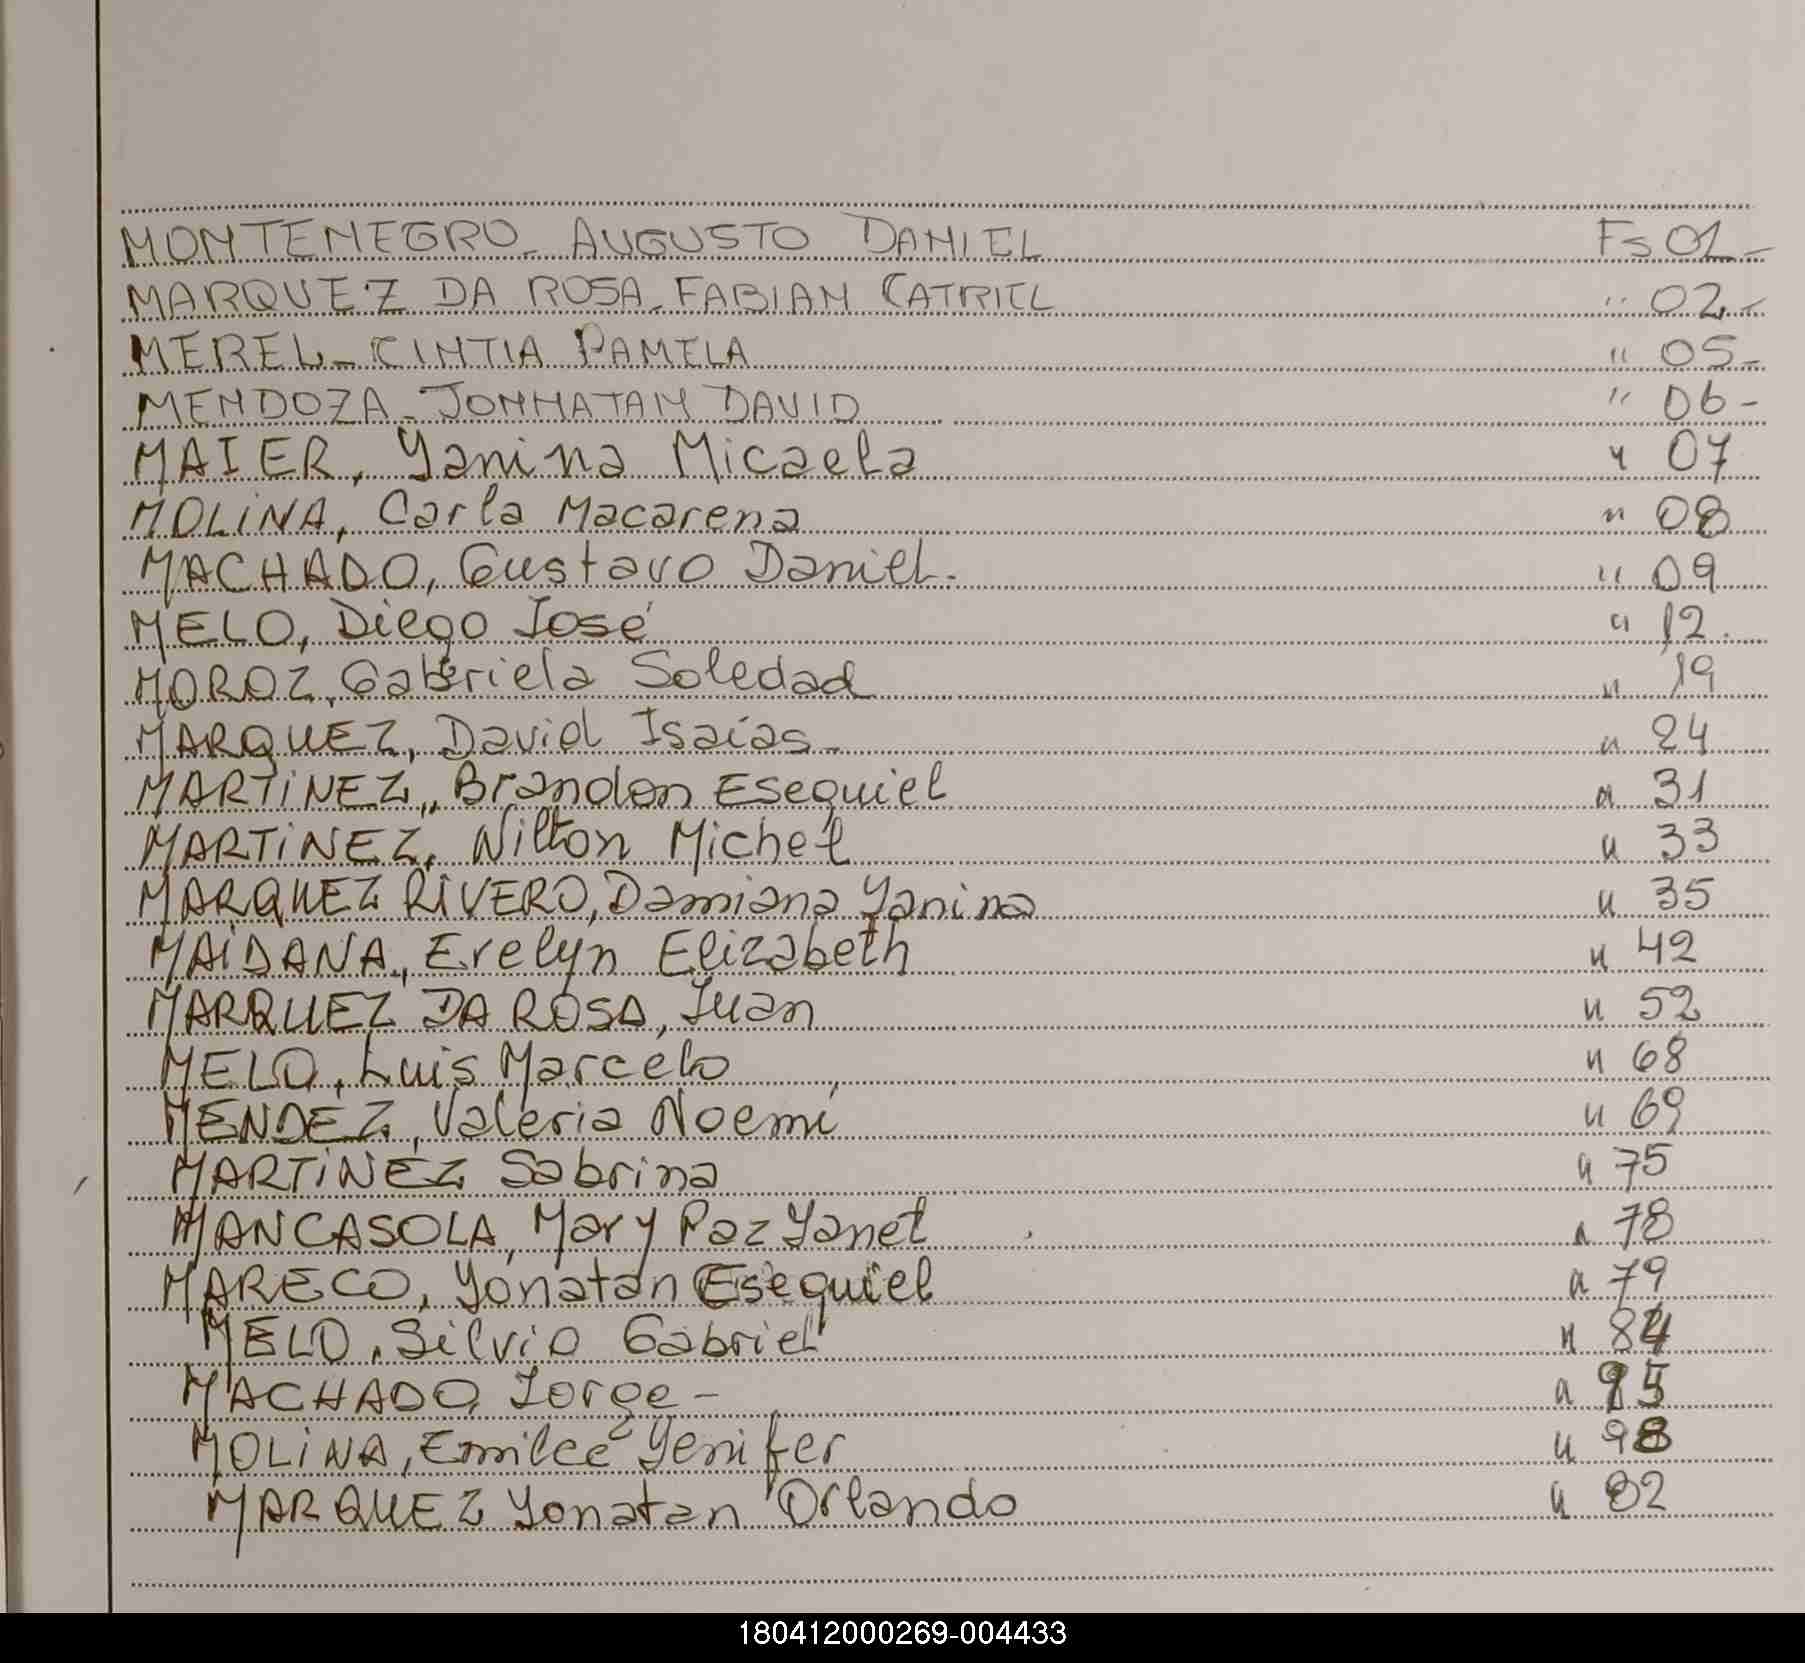 MONTENEGRO - AUGUSTO DANIEL Fs 01 -
MARQUEZ DA ROSA - FABIAN CATRIEL " 02 -
MEREL - CINTIA PAMELA " 05 -
MENDOZA - JONHATAN DAVID " 06 -
MAIER, Yanina Micaela " 07
MOLINA, Carla Macarena " 08
MACHADO, Gustavo Daniel. " 09
MELO, Diego José " 12.
MOROZ, Gabriela Soledad " 19
MARQUEZ, David Isaías - " 24
MARTINEZ, Brandon Esequiel " 31
MARTINEZ, Nilton Michel " 33
MARQUEZ RIVERO, Damiana Yanina " 35
MAIDANA, Evelyn Elizabeth " 42
MARQUEZ DA ROSA, Juan " 52
MELO, Luis Marcelo " 68
MENDEZ, Valeria Noemí " 69
MARTINEZ Sabrina " 75
MANCASOLA, Mary Paz Yanet " 78
MARECO, Yonatan Esequiel " 79
MELO, Silvio Gabriel " 84
MACHADO, Jorge - "
MOLINA, Emilce Yenifer " 98
MARQUEZ Yonatan Orlando "
180412000269-004433